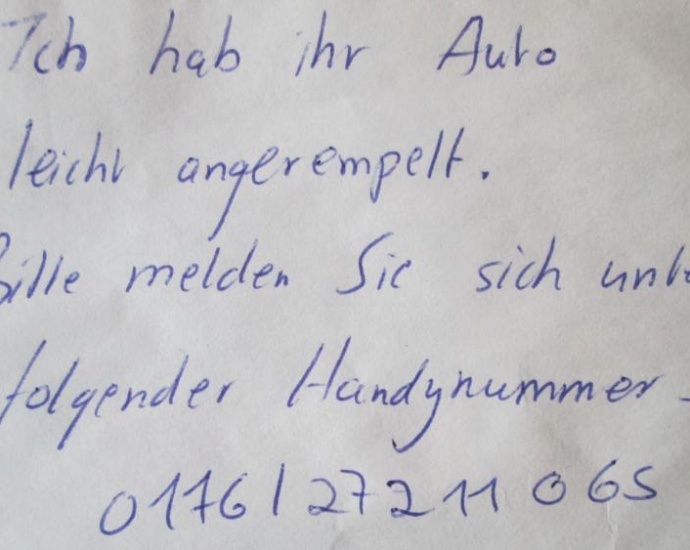 Ich hab ihr Auto
leicht angerempelt.
Bitte melden Sie sich unte
folgender Handynummer -
0176/27211065